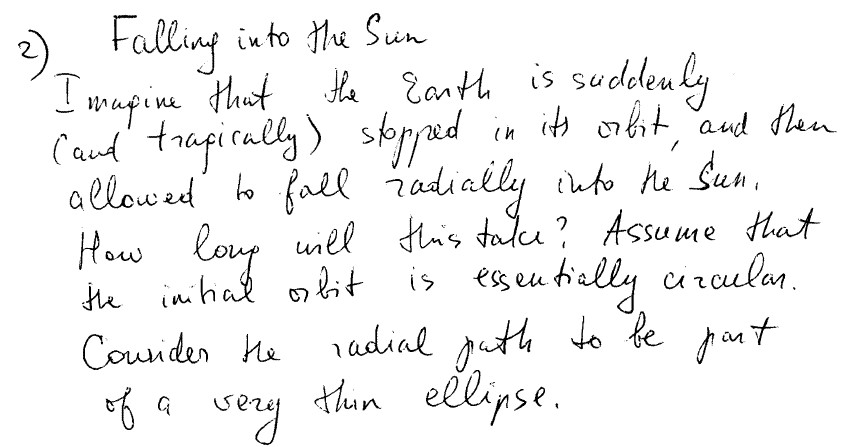 2) Falling into the Sun
Imagine that the Earth is suddenly
(and tragically) stopped in its orbit, and then
allowed to fall radially into the Sun.
How long will this take? Assume that
the initial orbit is essentially circular.
Consider the radial path to be part
of a very thin ellipse.